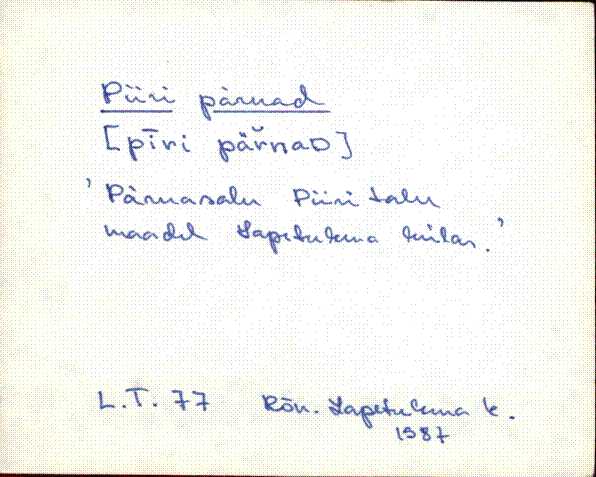 Piiri pärnad
[pīri pär̆naD]
'Pärnasalu Piiri talu
maadel Lapetukma külas.'
L.T. 77 Rõn. Lapetukma k.
1987